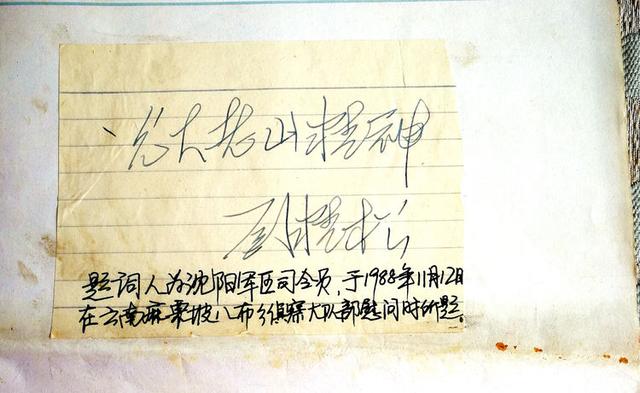 发扬老山精神
刘精松
题词人为沈阳军区司令员,于1988年11月12日
在云南麻栗坡八布乡侦察大队部慰问时所题。